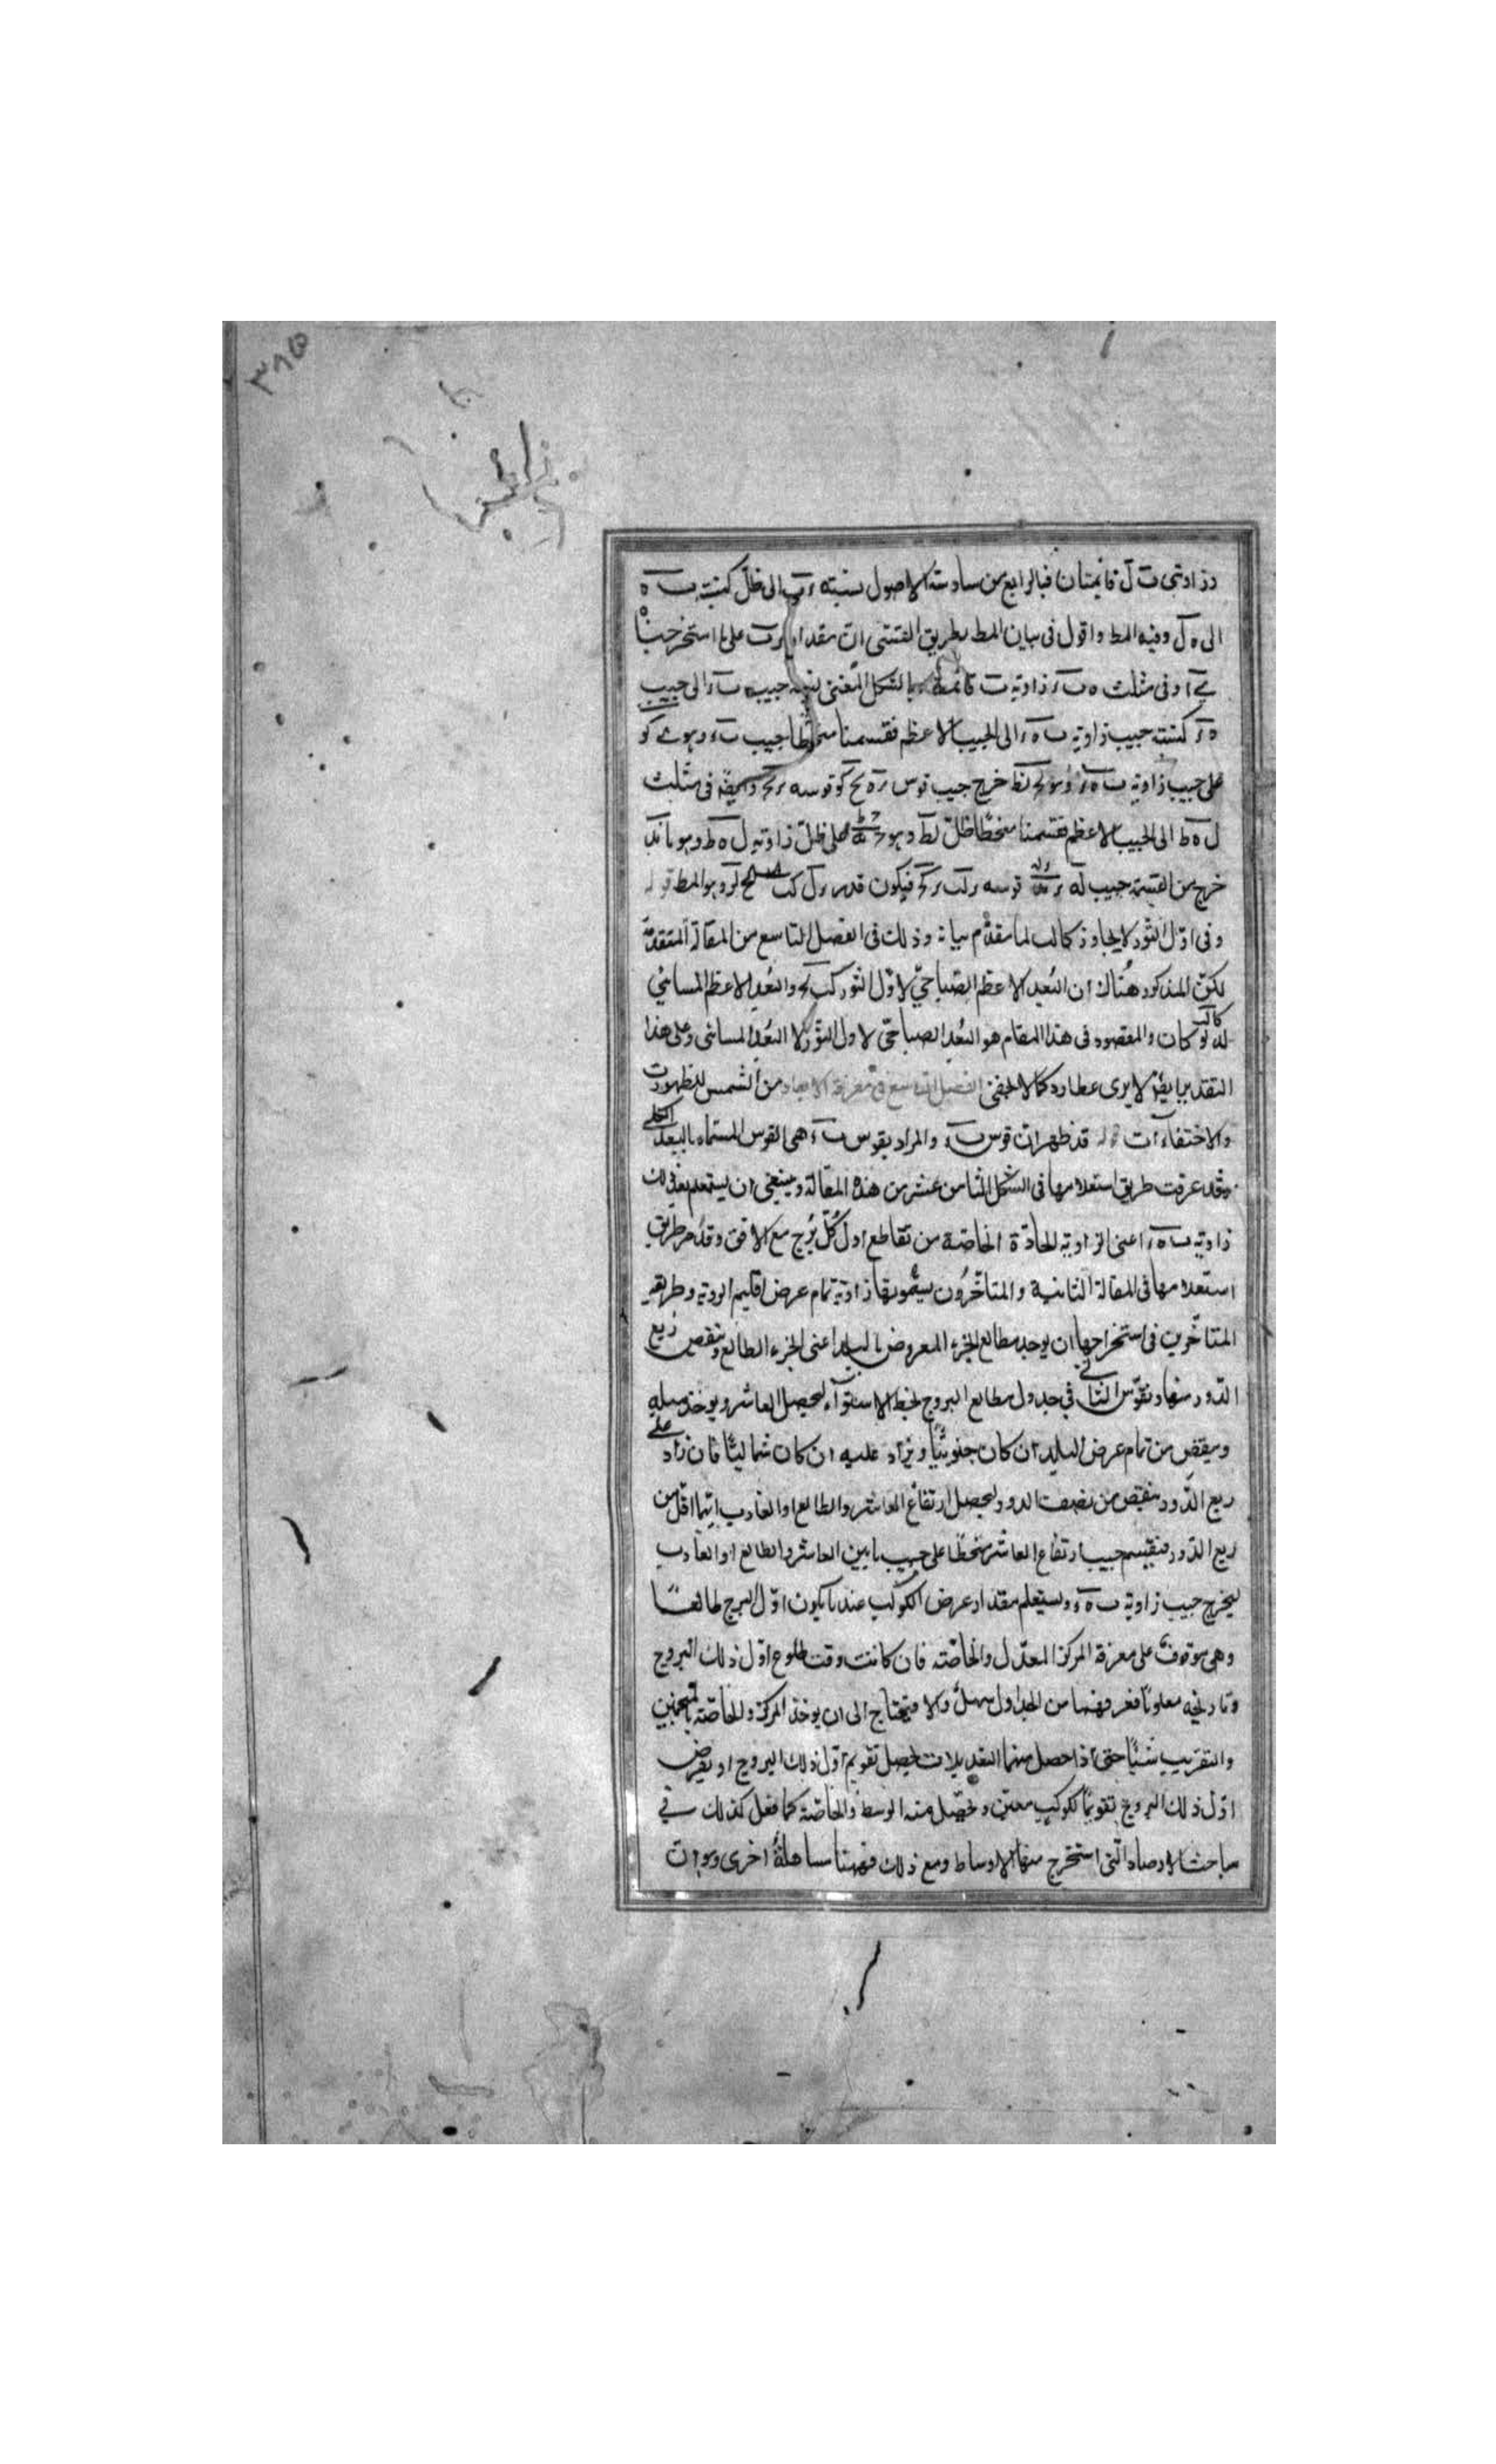 ٣٨٥
وزاويتى ب ل قائمتان فبالرابع من سادسة الاصول نسبة ر ب الى ظل كنسبة ب ه
الى ه ل وفيه المط واقول فى بيان المط بطريق المغنى ان مقدار ر ب على ما استخرجنا
وفى مثلث ه ب ر زاوية ب قائمة بالشكل المغنى نسبة جيب ب ر الى جيب
ه ر كنسبة جيب زاوية ب ه ر الى الجيب الاعظم فقسمنا منحطا جيب ب ر وهو
على جيب زاوية ب ه ر وهو خرج جيب قوس ر ه قوسه وايضا فى مثلث
ل ه ط الى الجيب الاعظم فقسمنا منحطا ظل لط وهو على ظل زاوية ل ه ط وهو
خرج من القسمة جيب له قوسه فيكون قدر ر ل وهو المط قوله
وفى اول الثور لا يجاوز كا لب لما تقدم بيانه وذلك فى الفصل التاسع من المقالة المتقدمة
لكن المذكور هناك ان البعد الاعظم الصباحى لاول الثور والبعد الاعظم المسائى
كان والمقصود فى هذا المقام هو البعد الصباحى لاول الثور لا البعد المسائى وعلى هذا
التقدير ايضا لا يرى عطارد كما لا يخفى الفصل التاسع فى معرفة الابعاد من الشمس للظهورات
والاختفاءات قوله قد ظهر ان قوس ب ر والمراد بقوس ب ر هى القوس المسماة بالبعد الكلى
وقد عرفت طريق استعلامها فى الشكل الثامن عشر من هذه المقالة وينبغى ان يستعلم بعد ذلك
زاوية ب ه ر اعنى الزاوية الحادة الخاصة من تقاطع اول كل برج مع الافق وقد مر طريق
استعلامها فى المقالة الثانية والمتأخرون يسمونها زاوية تمام عرض اقليم الروية وطريقة
المتأخرين فى استخراجها ان يوجد مطالع الجزء المعروض بالبلد اعنى الجزء الطالع وينقص ربع
الدور منها ويقوس الباقى فى جدول مطالع البروج لخط الاستواء ليحصل العاشر ويوخذ ميله
وينقص من تمام عرض البلد ان كان جنوبيا ويزاد عليه ان كان شماليا فان زاد على
ربع الدور ينقص من نصف الدور ليحصل ارتفاع العاشر والطالع او الغارب ايهما اقل من
ربع الدور فنقسم جيب ارتفاع العاشر منحطا على جيب ما بين العاشر والطالع او الغارب
ليخرج جيب زاوية ب ه ر ويستعلم مقدار عرض الكوكب عند ما يكون اول البرج طالعا
وهى موقوف على معرفة المركز المعدل والخاصة فان كانت وقت طلوع اول ذلك البروج
وتاريخه معلوما فمعرفتهما من الجداول سهل والا فيحتاج الى ان يوخذ المركز والخاصة بالتخمين
والتقريب شيئا حتى اذا حصل منهما التعديلات ليحصل تقويم اول ذلك البروج او يفرض
اول ذلك البروج تقويما لكوكب معين ويحصل منه الوسط والخاصة كما فعل كذلك فى
مباحث الارصاد التى استخرج منها الاوساط ومع ذلك فههنا مساهلة اخرى وهو ان